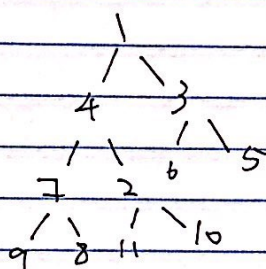 1
4 3
6 5
7 2
9 8 11 10